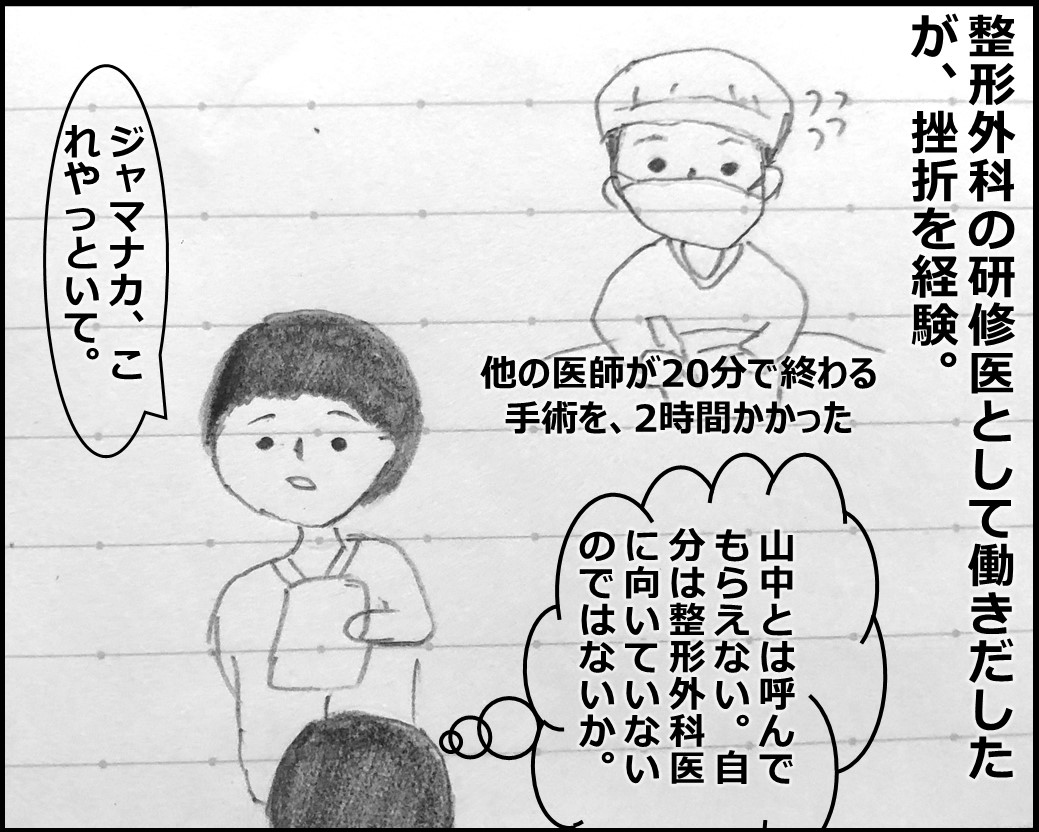 整形外科の研修医として働きだした
が、挫折を経験。
他の医師が20分で終わる
手術を、2時間かかった
ジャマナカ、こ
れやっといて。
山中とは呼んで
もらえない。自
分は整形外科医
に向いていない
のではないか。